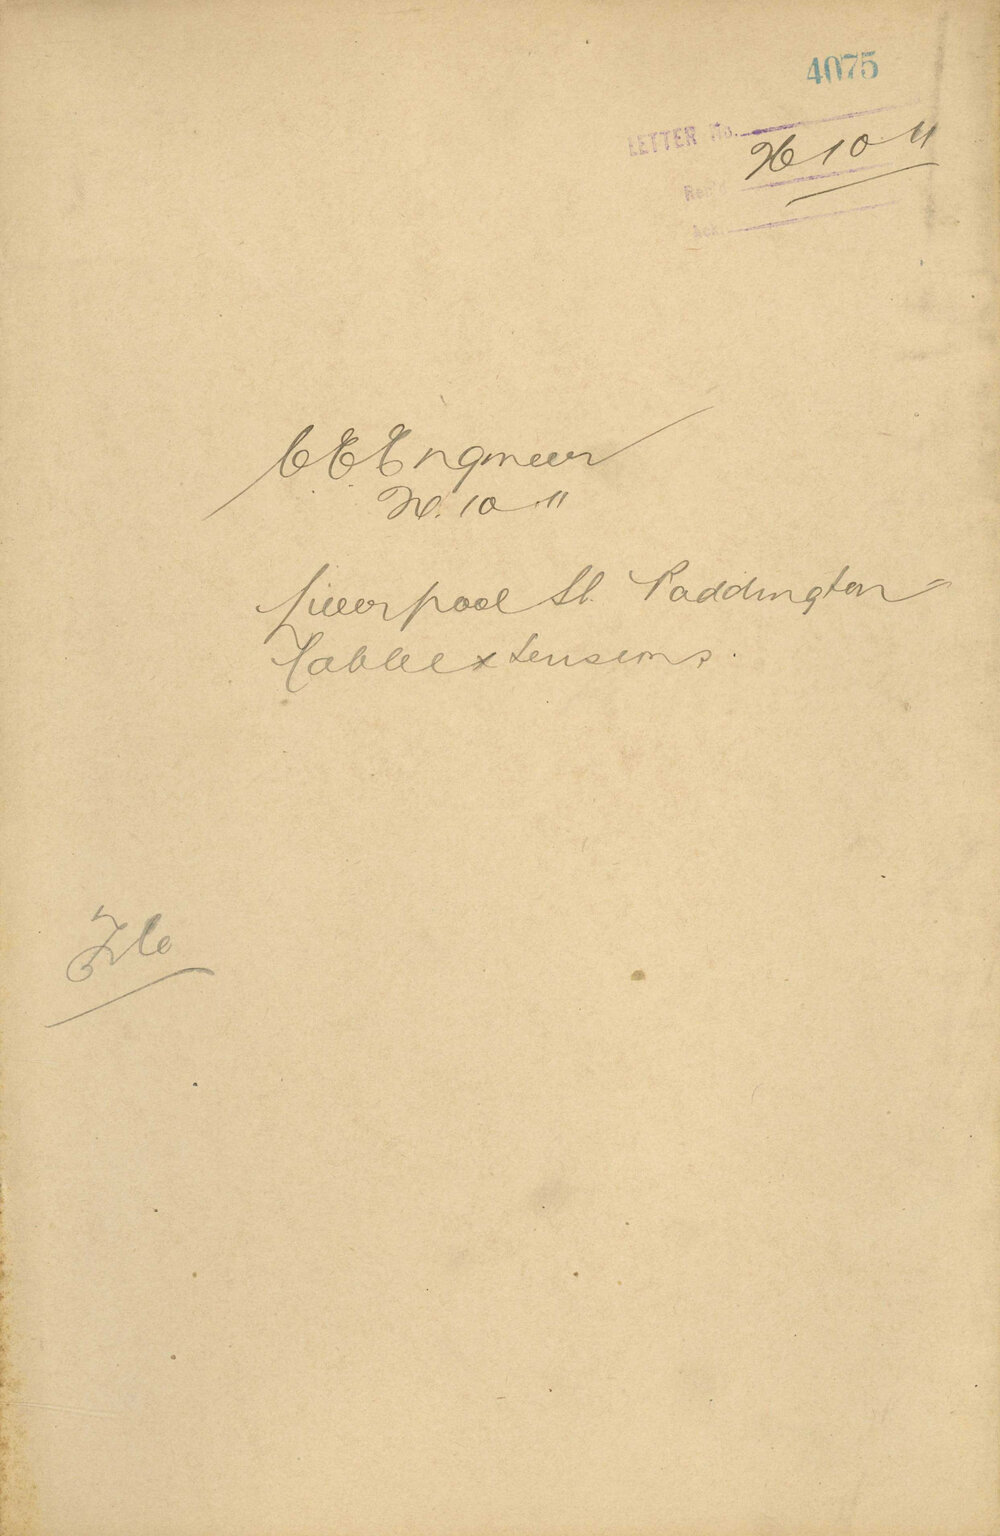 4075
LETTER No.
26 10 11
Rec'd
Ack.
C E Engineer
26. 10 11
Liverpool St. Paddington
Cable extensions.
File